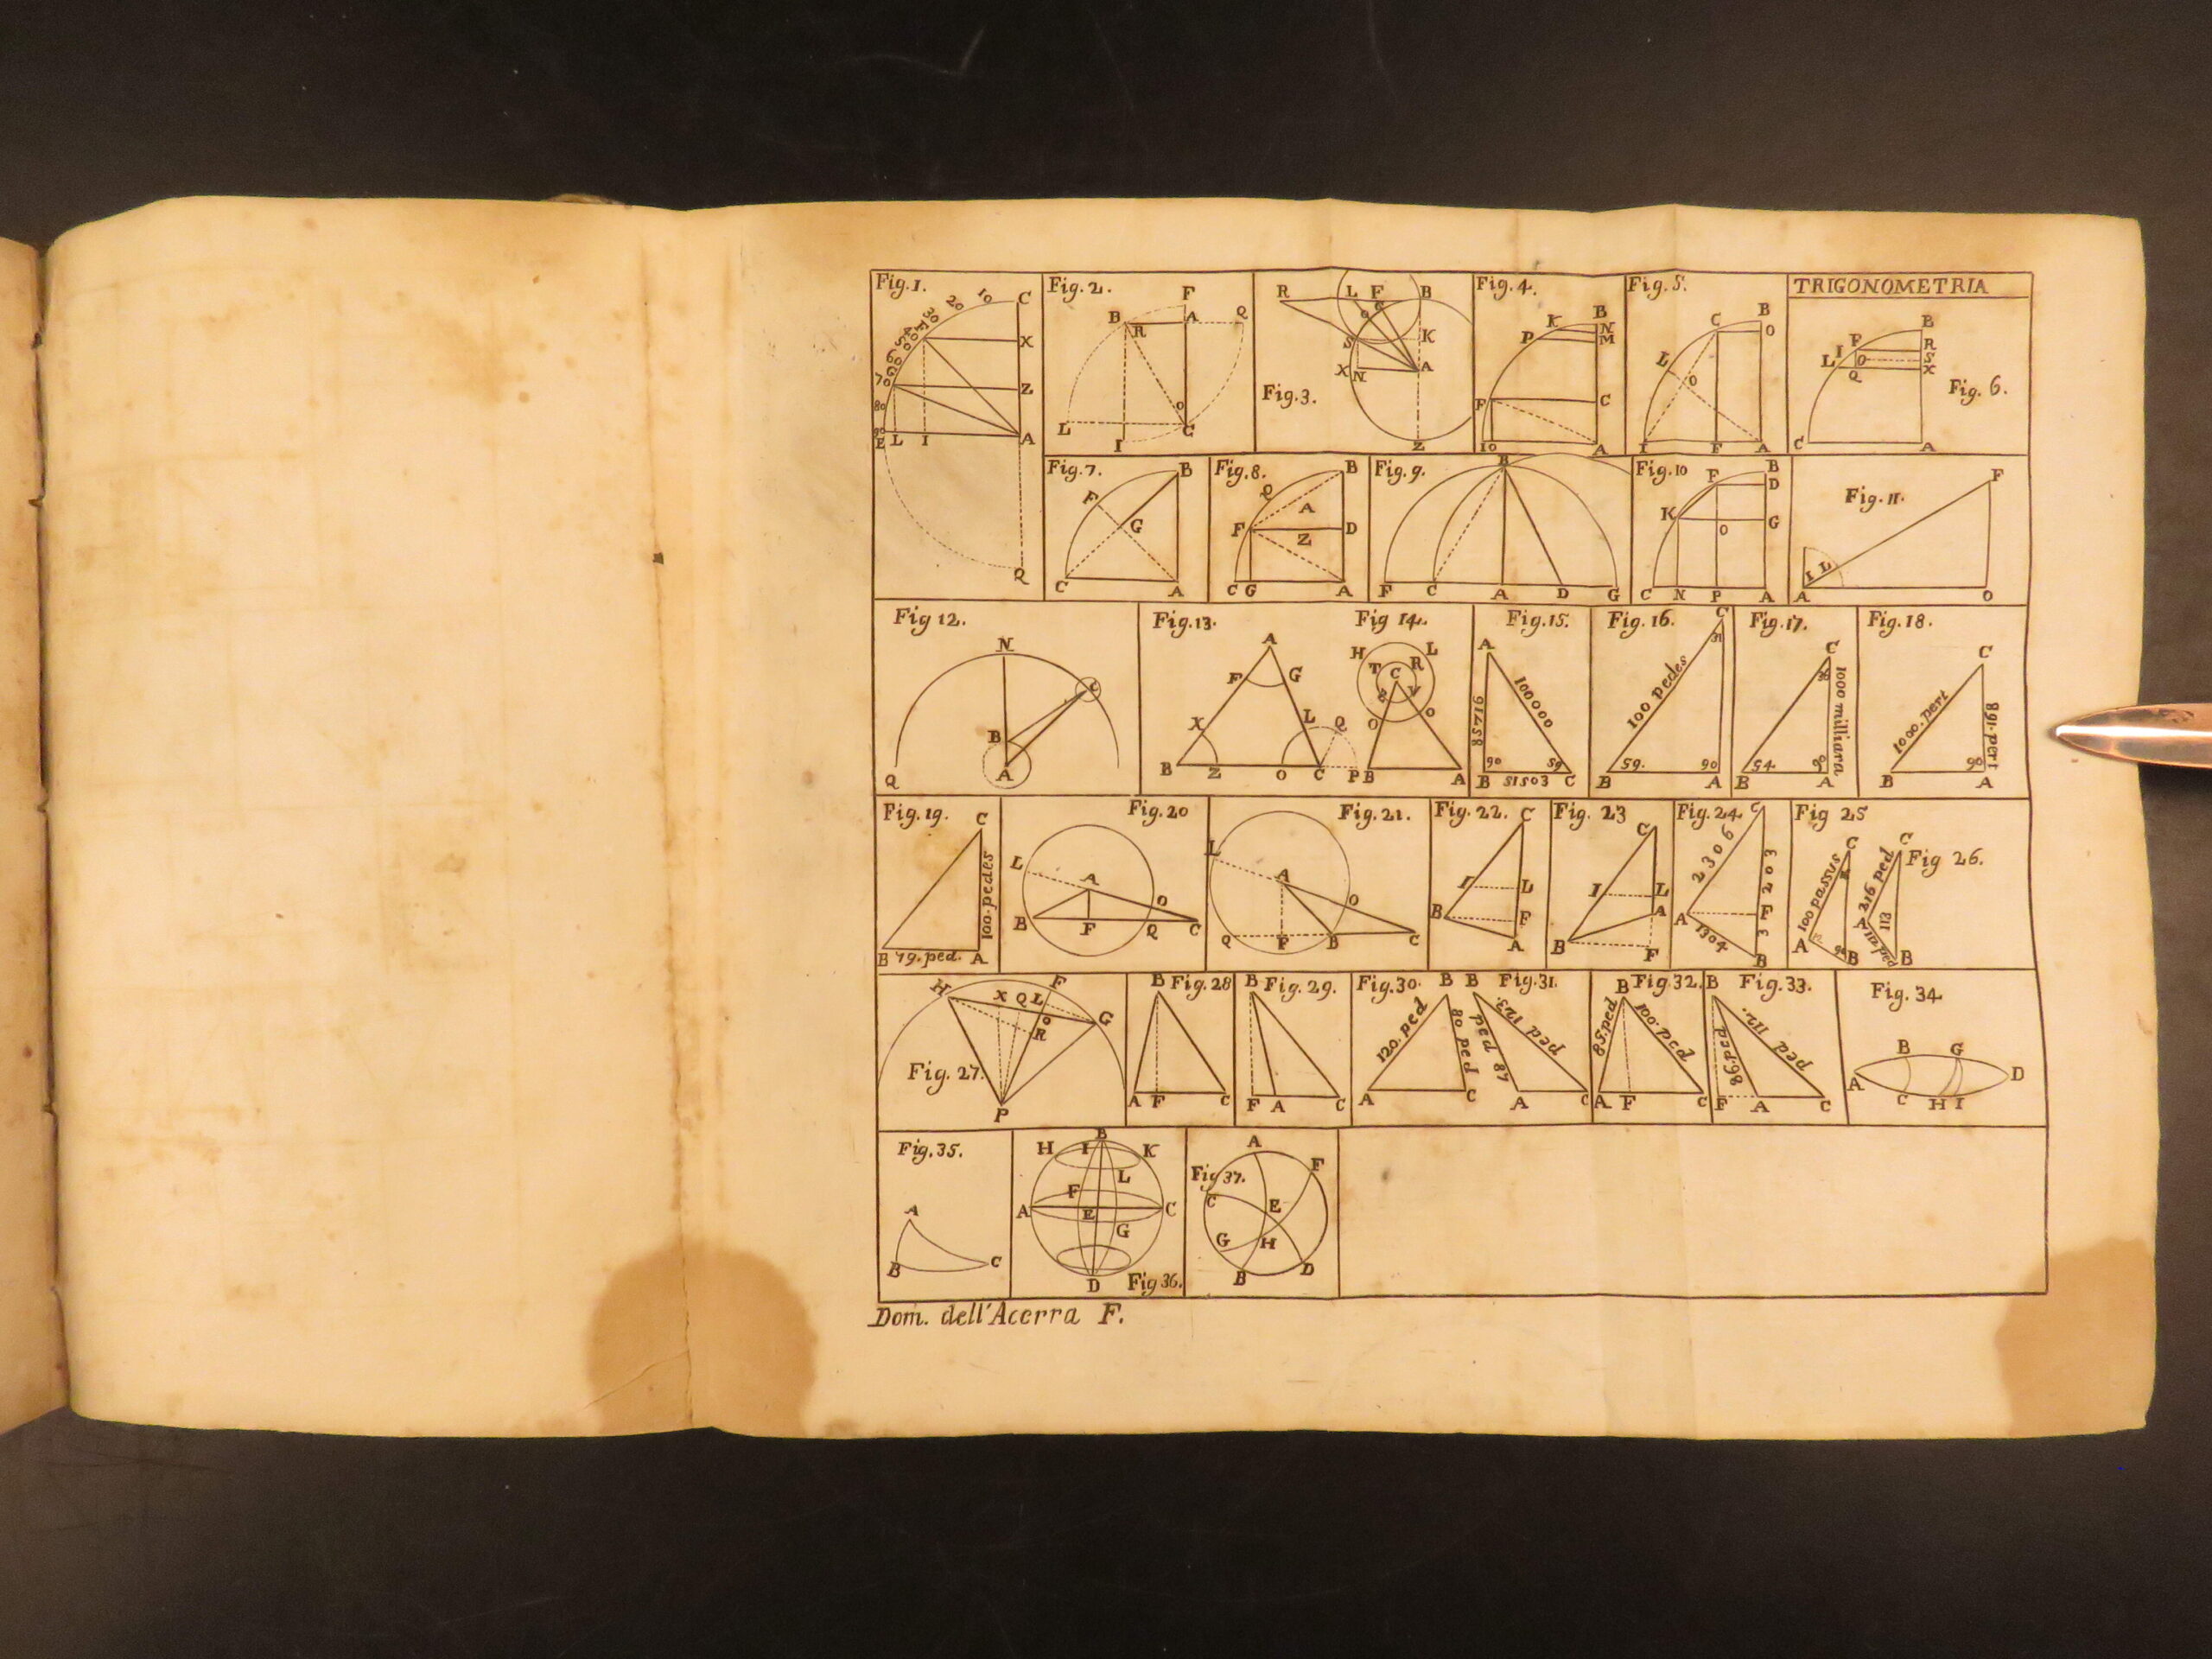 Fig.1.
10
20
30
40
50
60
70
80
90
C
F
X
G
Z
E L I A
Q
Fig.2.
F
B R A Q
O
L I C
R L F B
C
O
S K
X N A
Fig.3.
Z
Fig.4.
B
K N
P M
F C
IO A
Fig.5.
B
C O
L
O
I F A
TRIGONOMETRIA
B
F R
L I O S
Q X
Fig. 6.
C A
Fig.7.
B
F
G
C A
Fig.8.
B
Q
A
F D
Z
C G A
Fig.9.
B
F C A D G
Fig.10
B
F D
K G
O
C N P A
Fig.11.
F
I L
A O
Fig 12.
N
C
B
Q A
Fig.13.
A
F G
X L Q
B Z O C P
Fig 14.
H L
T C R
O O
B A
Fig.15.
A
85716
100000
90 59
B 51503 C
Fig.16.
C
31
100 pedes
59. 90
B A
Fig.17.
C
36
1000 milliara
54. 90
B A
Fig.18.
C
1000.pert
891.pert
90
B A
Fig.19.
C
100.pedes
B 79.ped. A
Fig.20
L A
O
B F Q C
Fig.21.
L
A
O
Q F B C
Fig.22.
C
I L
B F
A
Fig. 23
C
I L
A
B F
Fig.24.
C
2306
203
A F
1304 3
B
Fig 25
C
100 passus
A 90 B
C
Fig 26.
216 ped
A 113
ped 112
B
H X Q L F
O G
R
Fig. 27.
P
B Fig.28
A F C
B Fig.29.
F A C
Fig.30. B
120.ped
80 ped
A C
B Fig.31.
ped 123
ped 87
A C
B Fig.32.
85.ped
100.ped
A F C
B Fig.33.
ped 112.
86.ped
F A C
Fig.34.
B G
A D
C H I
Fig.35.
A
B C
B
H I K
L
F
A E C
G
D Fig 36.
A
Fig 37. F
C
E
G H
B D
Dom. dell'Acerra F.